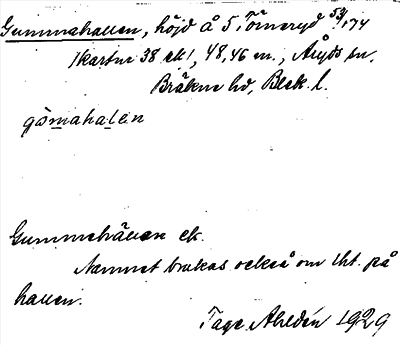 Gummahallen, höjd å 5 Tömeryd 53/174
(kartur 38 ek), 48,46 m., Åryds sn,
Bräkne hd, Blek. l.
gömahalen
Gummehällan ek.
Namnet brukas också om lht. på
hallen.
Tage Ahldén 1929